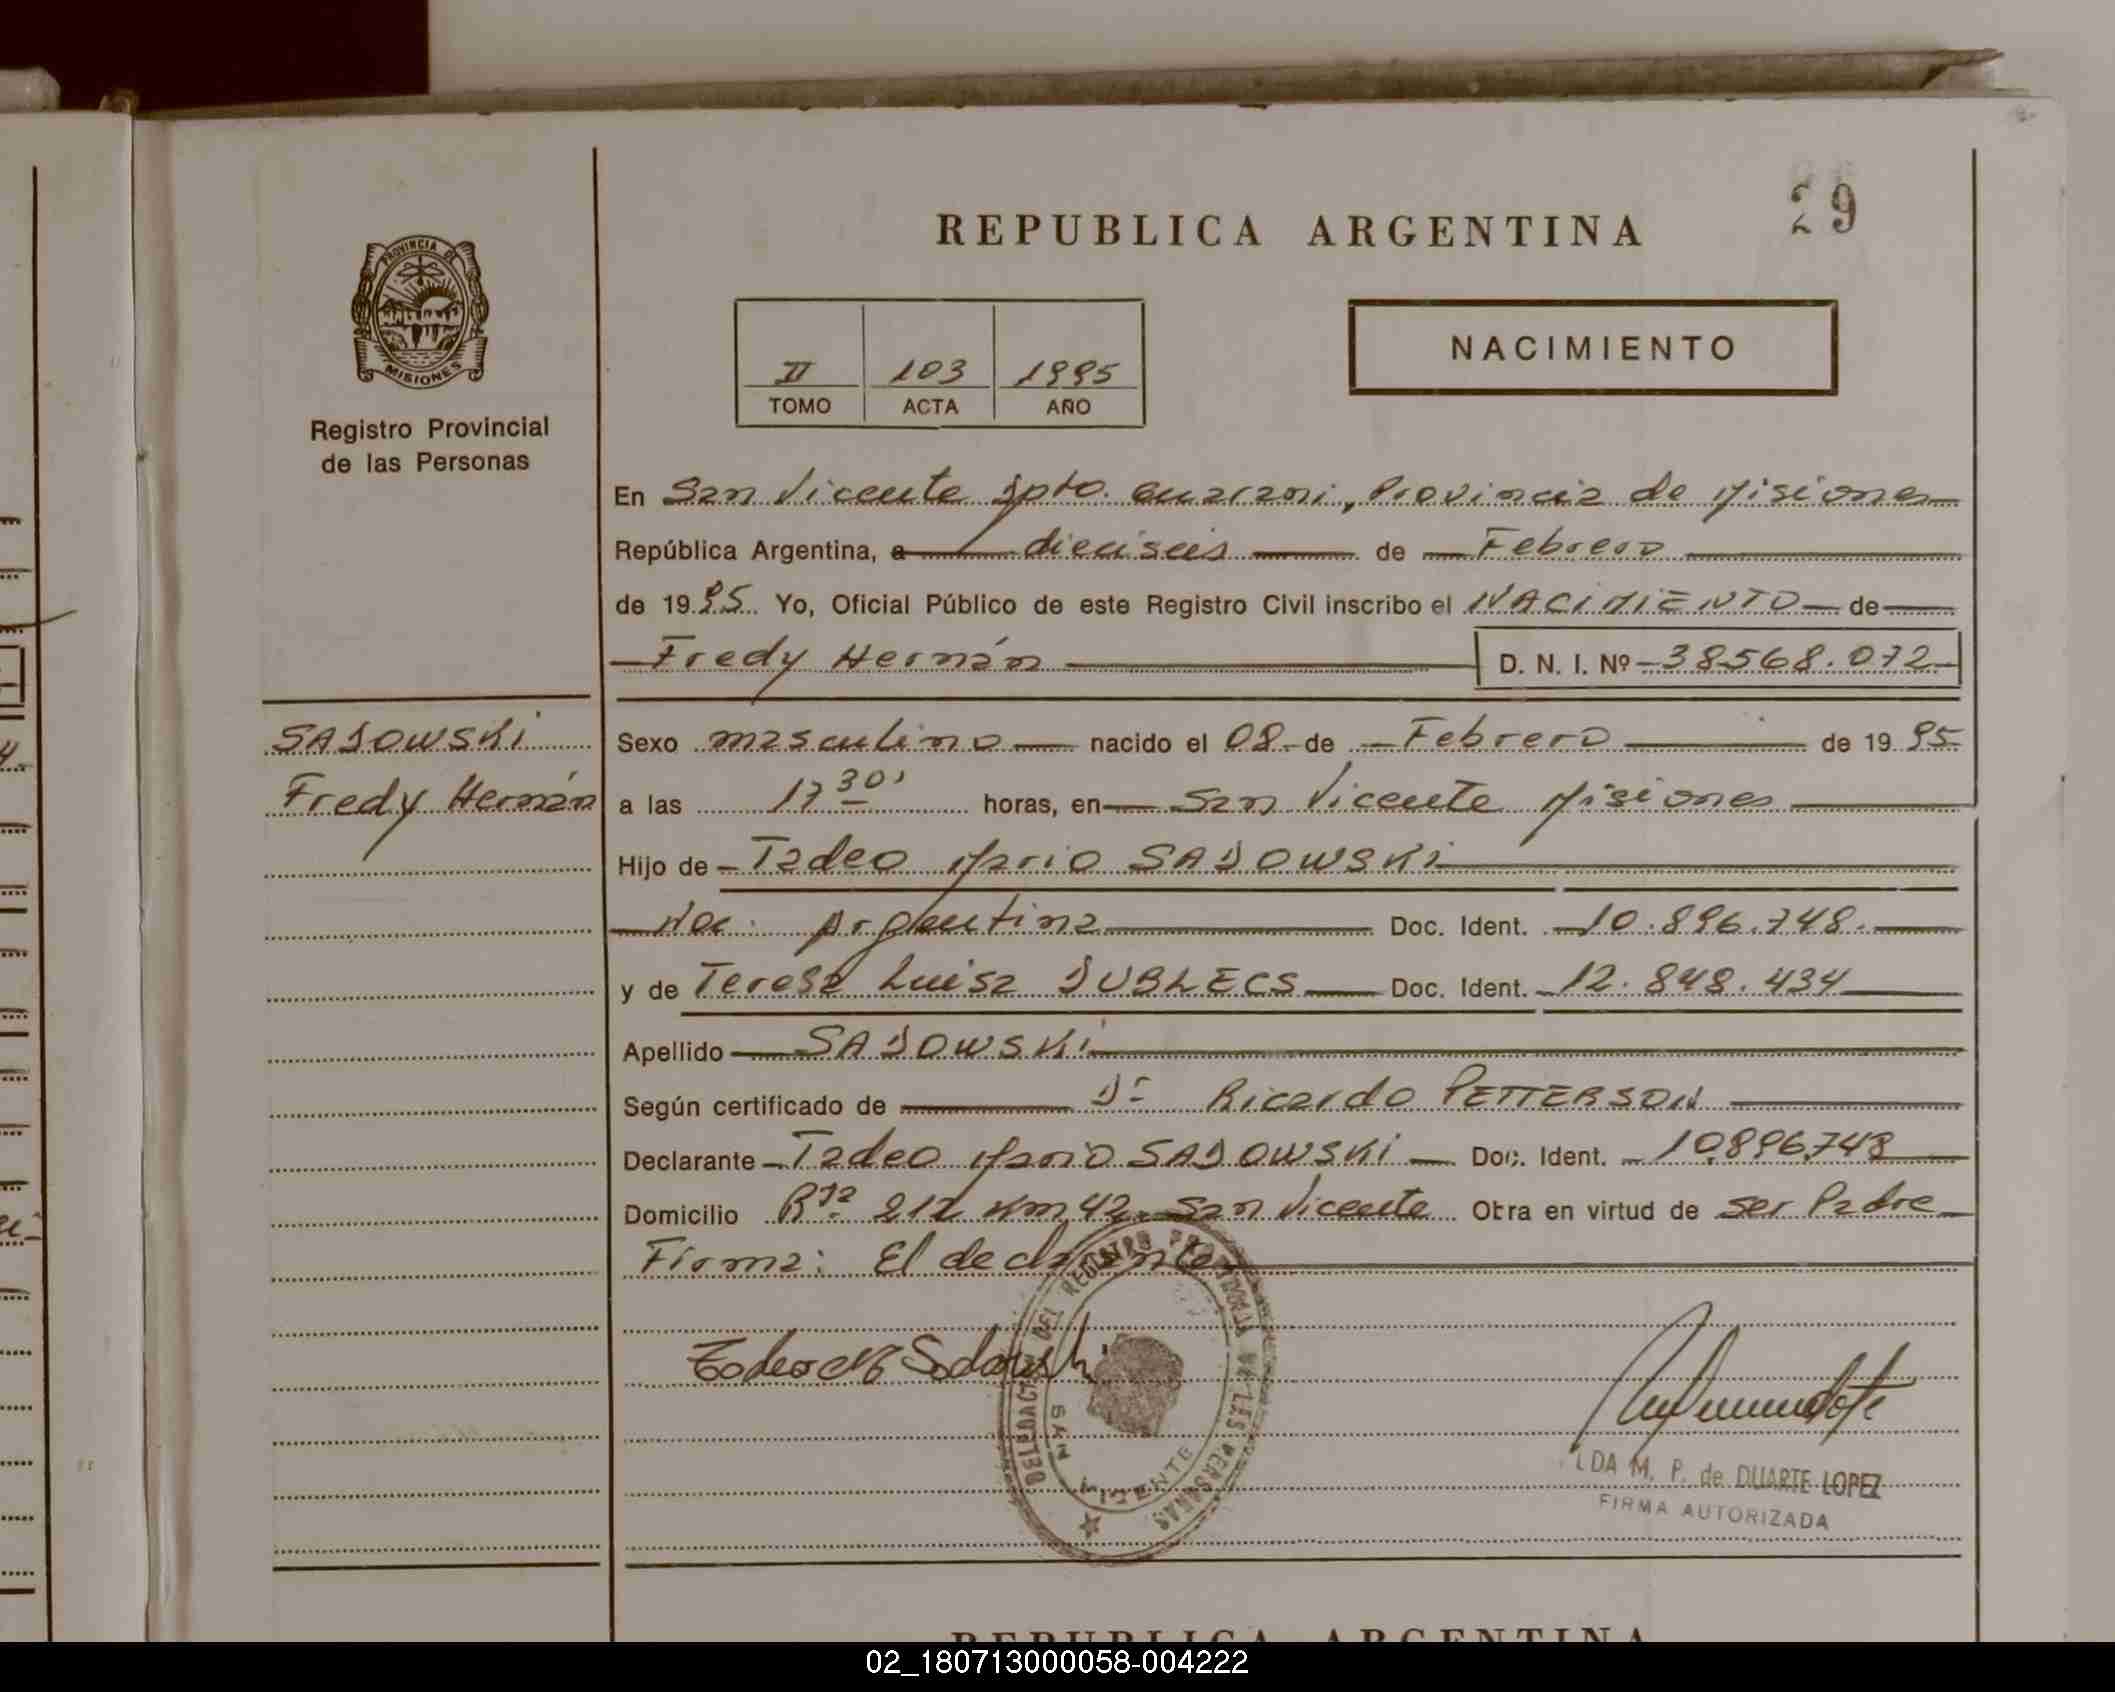 29
REPUBLICA ARGENTINA
PROVINCIA DE
MISIONES
Registro Provincial
de las Personas
II 103 1995
TOMO ACTA AÑO
NACIMIENTO
En San Vicente Dpto. Guarani, Provincia de Misiones
República Argentina, a dieciseis de Febrero
de 1995 Yo, Oficial Público de este Registro Civil inscribo el NACIMIENTO de
Fredy Hernán D. N. I. Nº 38568.072
SADOWSKI
Fredy Hernán
Sexo masculino nacido el 08 de Febrero de 1995
a las 17 30' horas, en San Vicente Misiones
Hijo de Tadeo Mario SADOWSKI
Nac. Argentina Doc. Ident. 10.896.748.
y de Teresa Luisa DUBLECS Doc. Ident. 12.848.434
Apellido SADOWSKI
Según certificado de Dr Ricardo PETTERSON
Declarante Tadeo Mario SADOWSKI Doc. Ident. 10.896.748
Domicilio Rta. 212 Km 42. San Vicente Obra en virtud de ser Padre
Firma: El declarante
Tadeo M Sadowski
DELEGACION DEL REGISTRO PROVINCIAL DE LAS PERSONAS
SAN VICENTE
LDA M. P. de DUARTE LOPEZ
FIRMA AUTORIZADA
REPUBLICA ARGENTINA
02_180713000058-004222